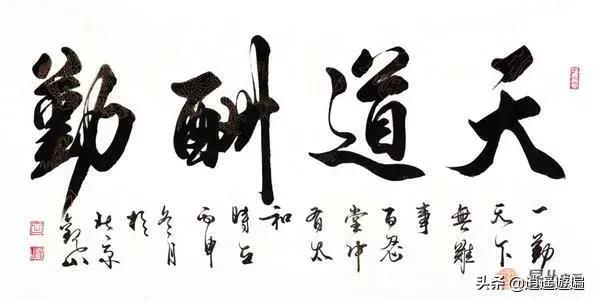 天道酬勤
一勤
天下
無難
事
百忍
堂中
有太
和
時在
丙申
冬月
於
北京
頭条 @逍遥遊